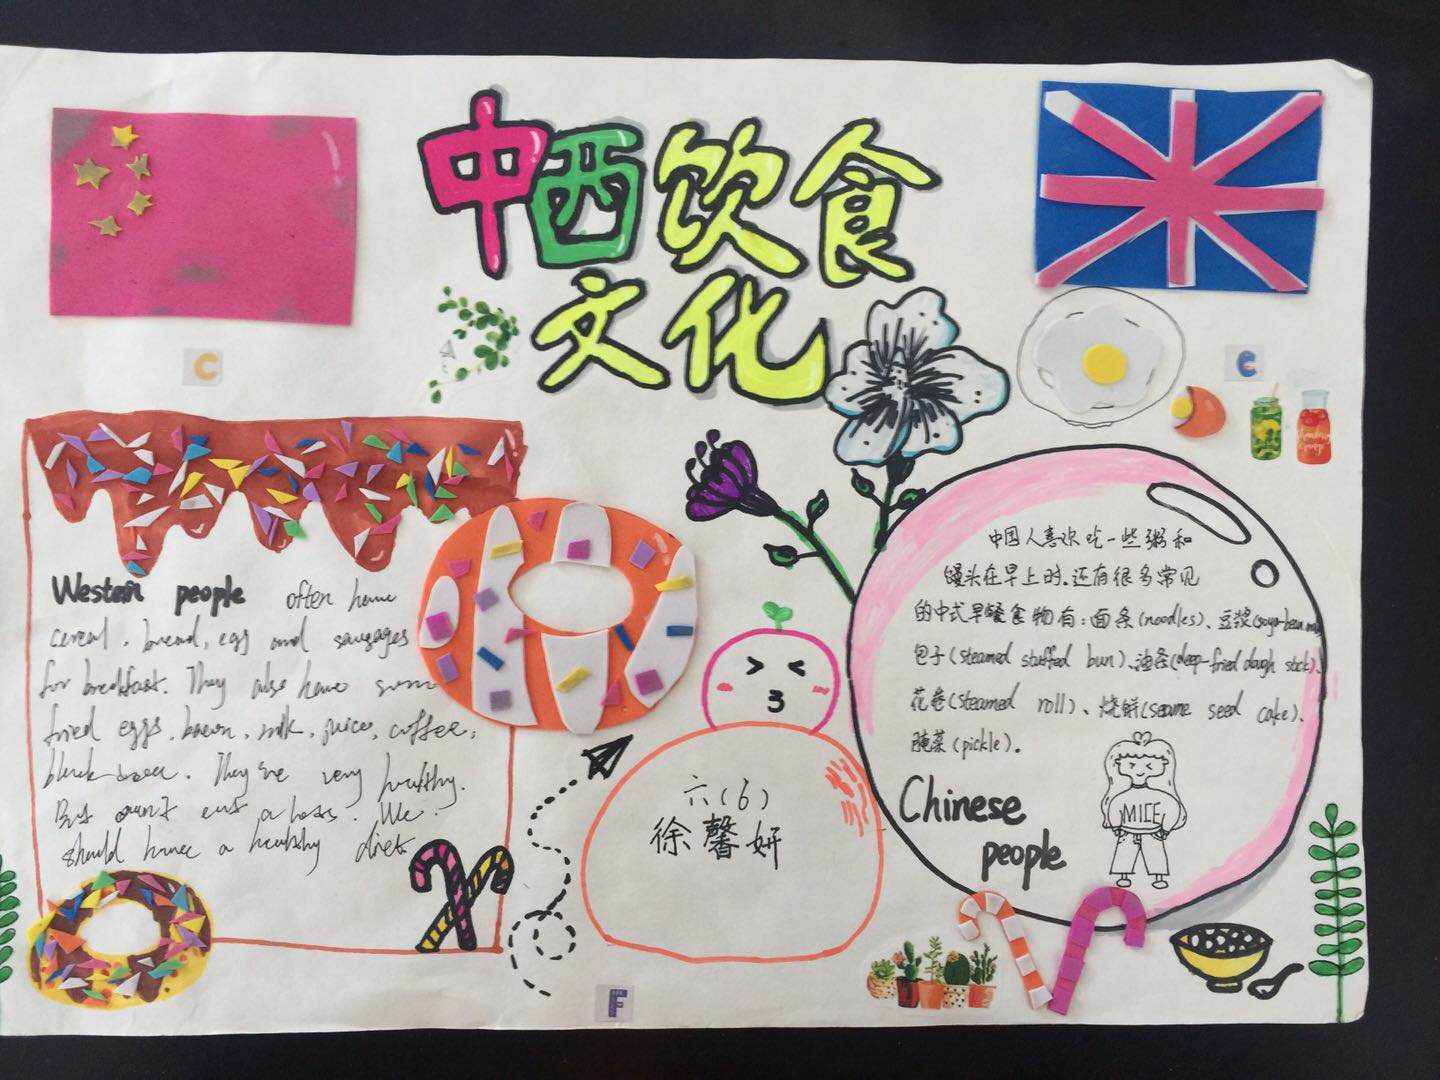 中西饮食
文化
C
C
Western people often have
cereal, bread, egg and sausages
for breakfast. They also have some
fried eggs, milk, juice, coffee,
They're very healthy.
We
should have a healthy diet
六(6)
徐馨妍
F
中国人喜欢吃一些粥和
馒头在早上时.还有很多常见
的中式早餐食物有:面条(noodles)、豆浆(soya-bean milk)
包子(steamed stuffed bun)、油条(deep-fried dough stick)、
花卷(steamed roll)、烧饼(sesame seed cake)、
腌菜(pickle)。
MICE
Chinese
people